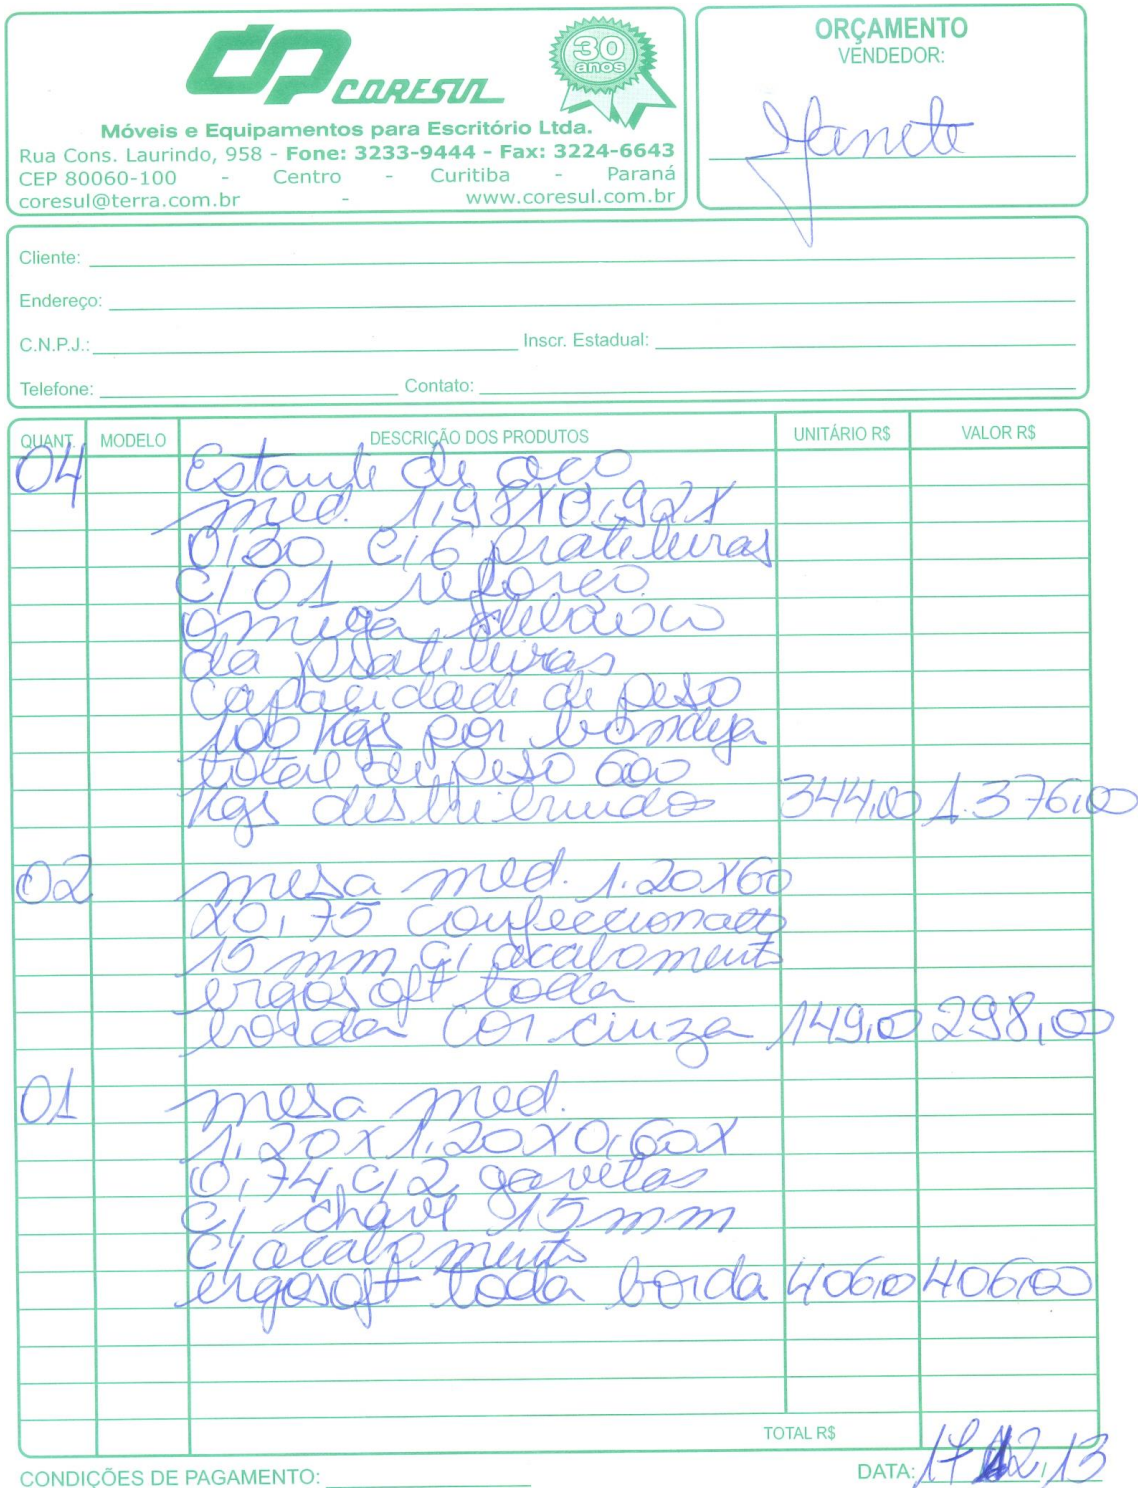 CORESUL
30
anos
Móveis e Equipamentos para Escritório Ltda.
Rua Cons. Laurindo, 958 - Fone: 3233-9444 - Fax: 3224-6643
CEP 80060-100 - Centro - Curitiba - Paraná
coresul@terra.com.br - www.coresul.com.br
ORÇAMENTO
VENDEDOR:
Cliente:
Endereço:
C.N.P.J.: Inscr. Estadual:
Telefone: Contato:
QUANT. MODELO DESCRIÇÃO DOS PRODUTOS UNITÁRIO R$ VALOR R$
04 Estante de aco
med. 1,98X0,92X
0,30 C/6 prateleiras
C/01 reforço
omega
da prateleiras
capacidade de peso
100 kgs por bandeja
total de peso 600
kgs distribuidos 344,00 1.376,00
02 mesa med. 1.20X60
X0,75 confeccionado
15 mm C/ acabamento
ergosoft toda
borda cor cinza 149,0 298,00
01 mesa med.
1,20X1,20X0,60X
0,74 C/2 gavetas
C/ chave 15mm
C/ acabamento
ergosoft toda borda 406,0 406,00
TOTAL R$
CONDIÇÕES DE PAGAMENTO: DATA: 17 12, 13